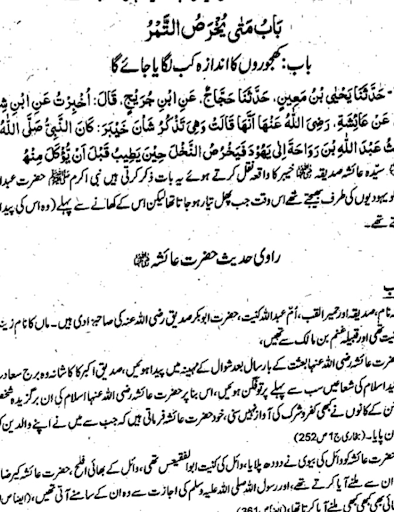 بَابُ مَتٰى يُخْرَصُ التَّمْرُ
باب: کھجوروں کا اندازہ کب لگایا جائے گا
حَدَّثَنَا يَحْيَى بْنُ مَعِينٍ، حَدَّثَنَا حَجَّاجٌ، عَنِ ابْنِ جُرَيْجٍ، قَالَ: أُخْبِرْتُ عَنِ ابْنِ شِهَ
عَنْ عَائِشَةَ، رَضِيَ اللّٰهُ عَنْهَا أَنَّهَا قَالَتْ وَهِيَ تَذْكُرُ شَأْنَ خَيْبَرَ: كَانَ النَّبِيُّ صَلَّى اللّٰهُ
ثُ عَبْدَ اللّٰهِ بْنَ رَوَاحَةَ إِلَى يَهُودَ فَيَخْرُصُ النَّخْلَ حِينَ يَطِيبُ قَبْلَ أَنْ يُؤْكَلَ مِنْهُ
سیدہ عائشہ صدیقہ خیبر کا واقعہ نقل کرتے ہوئے یہ بات ذکر کرتی ہیں نبی اکرم ﷺ، حضرت عبدا
کو یہودیوں کی طرف بھیجتے تھے اس وقت جب پھل تیار ہو جاتا تھا لیکن اس کے کھانے سے پہلے (وہ اس کی پیدا
تے تھے۔
راوی حدیث حضرت عائشہ
ب
نام، صدیقہ اور حمیرا لقب، اُمّ عبداللہ کنیت، حضرت ابوبکر صدیق رضی اللہ عنہ کی صاحبزادی ہیں۔ ماں کا نام زین
یت تھی اور قبیلہ غنم بن مالک سے تھیں،
ت عائشہ رضی اللہ عنہا بعثت کے چار سال بعد شوال کے مہینہ میں پیدا ہوئیں، صدیق اکبر کا کاشانہ وہ برج سعادت
ید اسلام کی شعاعیں سب سے پہلے پرتوفگن ہوئیں، اس بنا پر حضرت عائشہ رضی اللہ عنہا اسلام کی ان برگزیدہ شخص
ن کے کانوں نے کبھی کفر و شرک کی آواز نہیں سنی، خود حضرت عائشہ فرماتی ہیں کہ جب سے میں نے اپنے والدین ک
ن پایا۔ (بخاری ج 1 ص 252)
حضرت عائشہ کو وائل کی بیوی نے دودھ پلایا، وائل کی کنیت ابوالفقیعس تھی، وائل کے بھائی افلح، حضرت عائشہ کے رضا
ان سے ملنے آیا کرتے تھے، اور رسول اللہ صلی اللہ علیہ وسلم کی اجازت سے وہ ان کے سامنے آتی تھیں، (ایضاً ص
ائی بھی کبھی کبھی ملنے آیا کرتا تھا، (ایضاً ص 361)